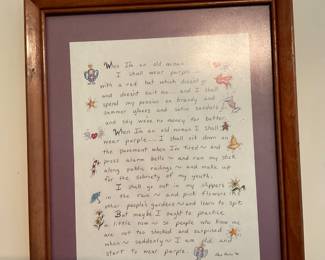 When I'm an old woman
I shall wear purple
with a red hat which doesn't go
and doesn't suit me... and I shall
spend my pension on brandy and
summer gloves and satin sandals
and say we've no money for butter.
When I'm an old woman I shall
wear purple.... I shall sit down on
the pavement when I'm tired ~ and
press alarm bells ~ and run my stick
along public railings ~ and make up
for the sobriety of my youth.
I shall go out in my slippers
in the rain ~ and pick flowers in
other people's gardens ~ and learn to spit.
But maybe I ought to practice
a little now ~ so people who know me
are not too shocked and surprised
when ~ suddenly ~ I am old and
start to wear purple.